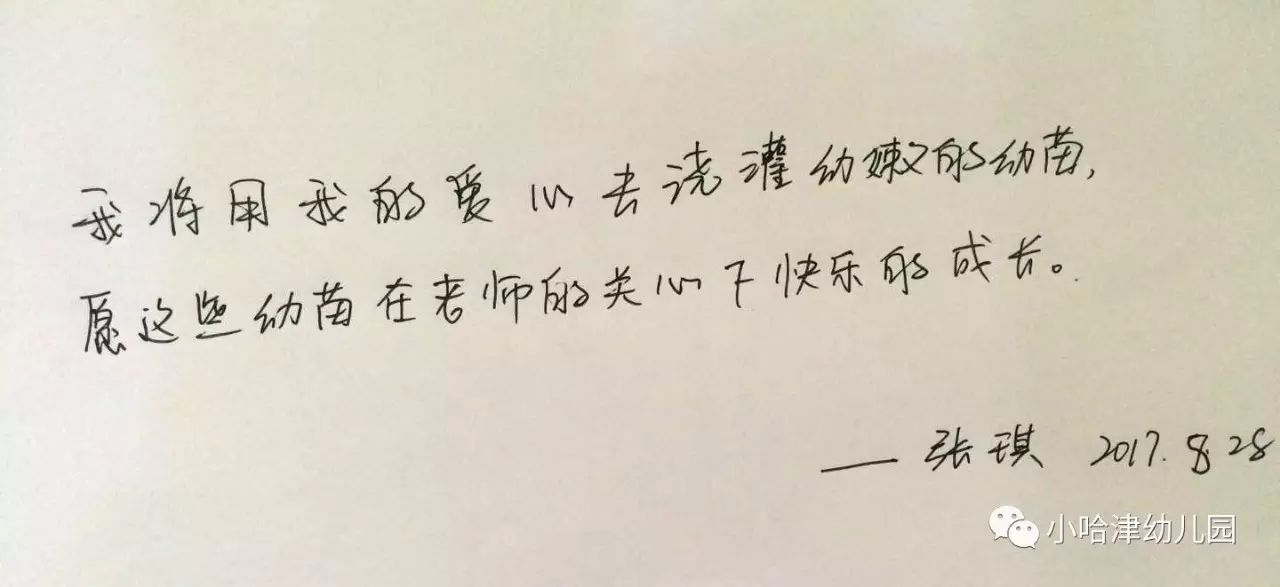 我将用我的爱心去浇灌幼嫩的幼苗,
愿这些幼苗在老师的关心下快乐的成长。
——张琪 2017.8.28
小哈津幼儿园